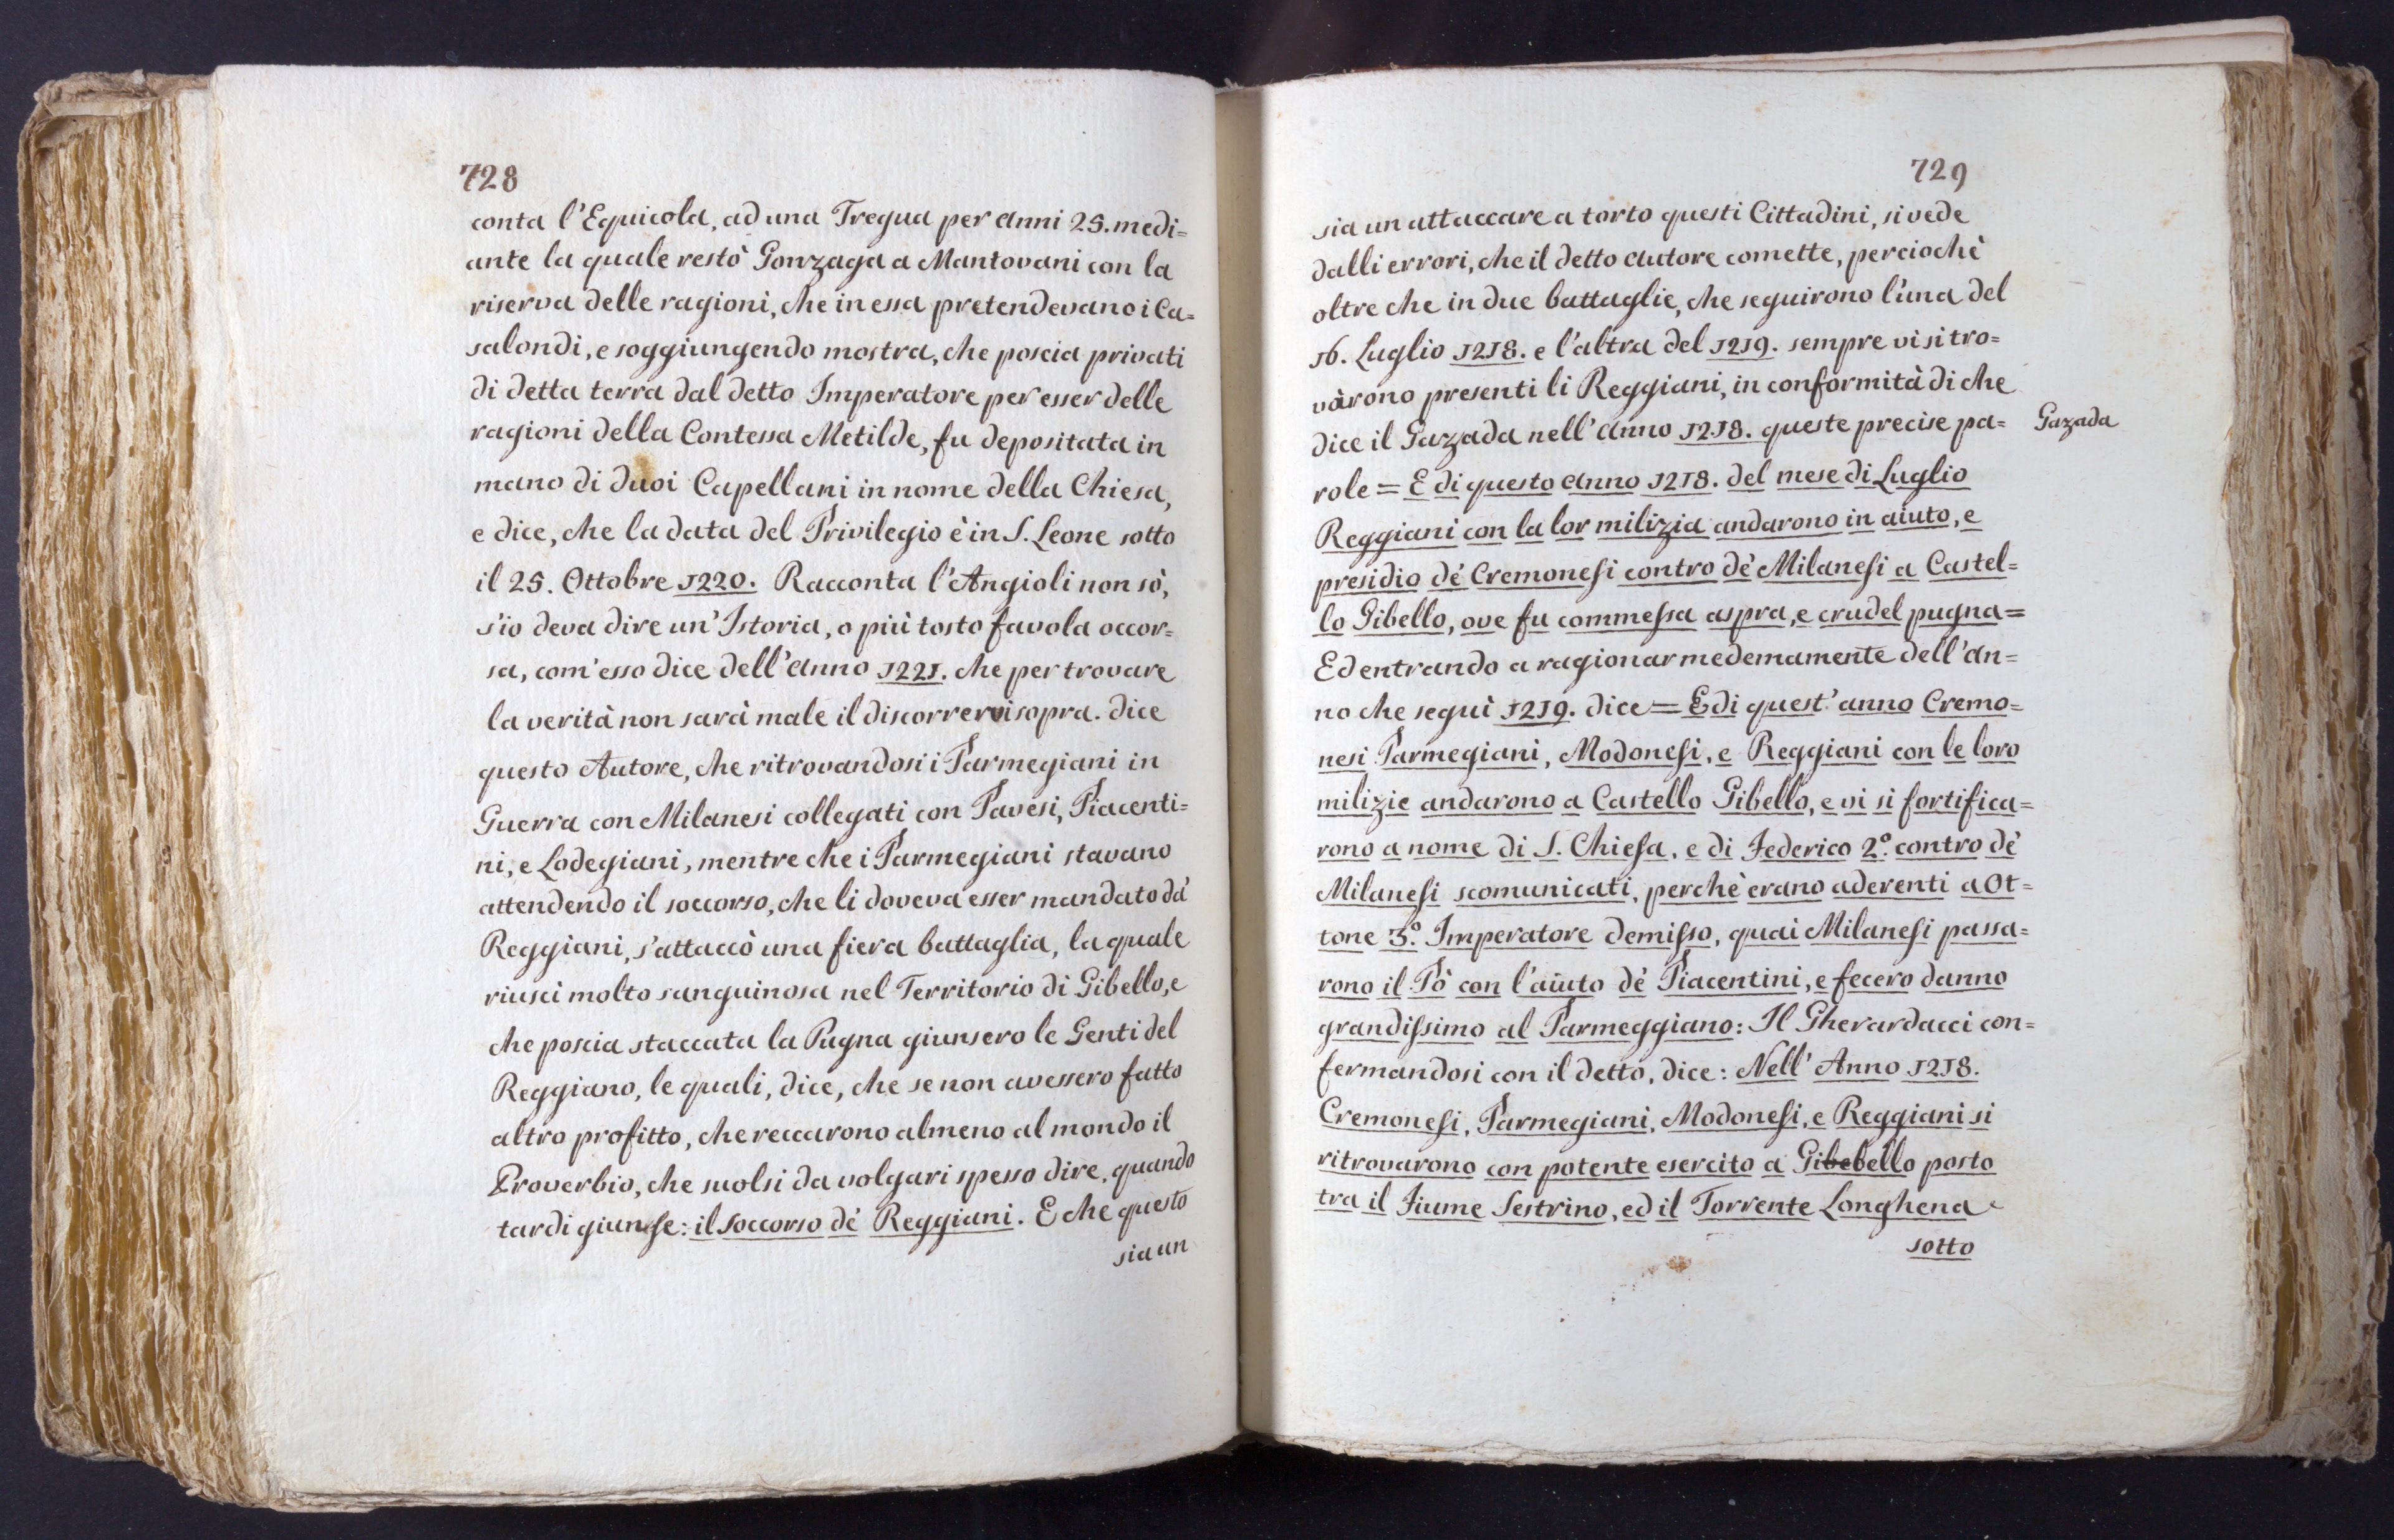 728
conta l'Equicola, ad una Tregua per Anni 25. medi=
ante la quale restò Gonzaga a Mantovani con la
riserva delle ragioni, che in essa pretendevano i Ca=
salondi, e soggiungendo mostra, che poscia privati
di detta terra dal detto Imperatore per esser delle
ragioni della Contessa Metilde, fu depositata in
mano di duoi Capellani in nome della Chiesa,
e dice, che la data del Privilegio è in S. Leone sotto
il 25. Ottobre 1220. Racconta l'Angioli non sò,
s'io deva dire un' Istoria, o più tosto favola occor=
sa, com'esso dice dell'Anno 1221. che per trovare
la verità non sarà male il discorrervi sopra. dice
questo Autore, che ritrovandosi i Parmegiani in
Guerra con Milanesi collegati con Pavesi, Piacenti=
ni, e Lodegiani, mentre che i Parmegiani stavano
attendendo il soccorso, che li doveva esser mandato dà
Reggiani, s'attaccò una fiera battaglia, la quale
riuscì molto sanguinosa nel Territorio di Gibello, e
che poscia staccata la Pugna giunsero le Genti del
Reggiano, le quali, dice, che se non avessero fatto
altro profitto, che reccarono almeno al mondo il
Proverbio, che suolsi da volgari spesso dire, quando
tardi giunse: il soccorso dé Reggiani. E che questo
sia un
729
sia un attaccare a torto questi Cittadini, si vede
dalli errori, che il detto Autore comette, perciochè
oltre che in due battaglie, che seguirono l'una del
16. Luglio 1218. e l'altra del 1219. sempre vi si tro=
vàrono presenti li Reggiani, in conformità di che
dice il Gazada nell'Anno 1218. queste precise pa=
Gazada
role = E di questo Anno 1218. del mese di Luglio
Reggiani con la lor milizia andarono in aiuto, e
presidio dé Cremonesi contro dè Milanesi a Castel=
lo Gibello, ove fu commessa aspra, e crudel pugna=
Ed entrando a ragionar medemamente dell'An=
no che seguì 1219. dice = E di quest'anno Cremo=
nesi Parmegiani, Modonesi, e Reggiani con le loro
milizie andarono a Castello Gibello, e vi si fortifica=
rono a nome di S. Chiesa, e di Federico 2º. contro dè
Milanesi scomunicati, perchè erano aderenti a Ot=
tone 3º. Imperatore demisso, quai Milanesi passa=
rono il Pò con l'aiuto dé Piacentini, e fecero danno
grandissimo al Parmeggiano: Il Gherardacci con=
fermandosi con il detto, dice: Nell' Anno 1218.
Cremonesi, Parmegiani, Modonesi, e Reggiani si
ritrovarono con potente esercito a Gibebello posto
tra il Fiume Sestrino, ed il Torrente Longhena
sotto